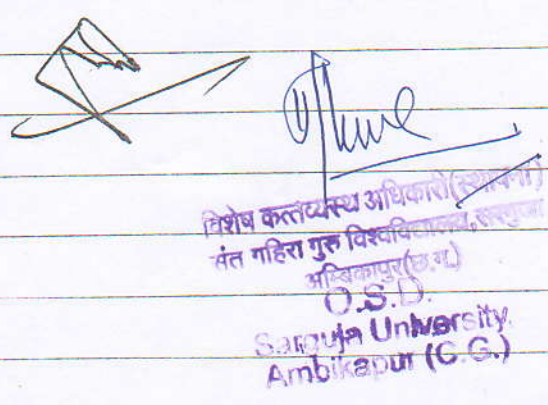 विशेष कर्त्तव्यस्थ अधिकारी(स्थापना)
संत गहिरा गुरु विश्वविद्यालय, सरगुजा
अम्बिकापुर(छ.ग.)
O.S.D.
Sarguja University.
Ambikapur (C.G.)